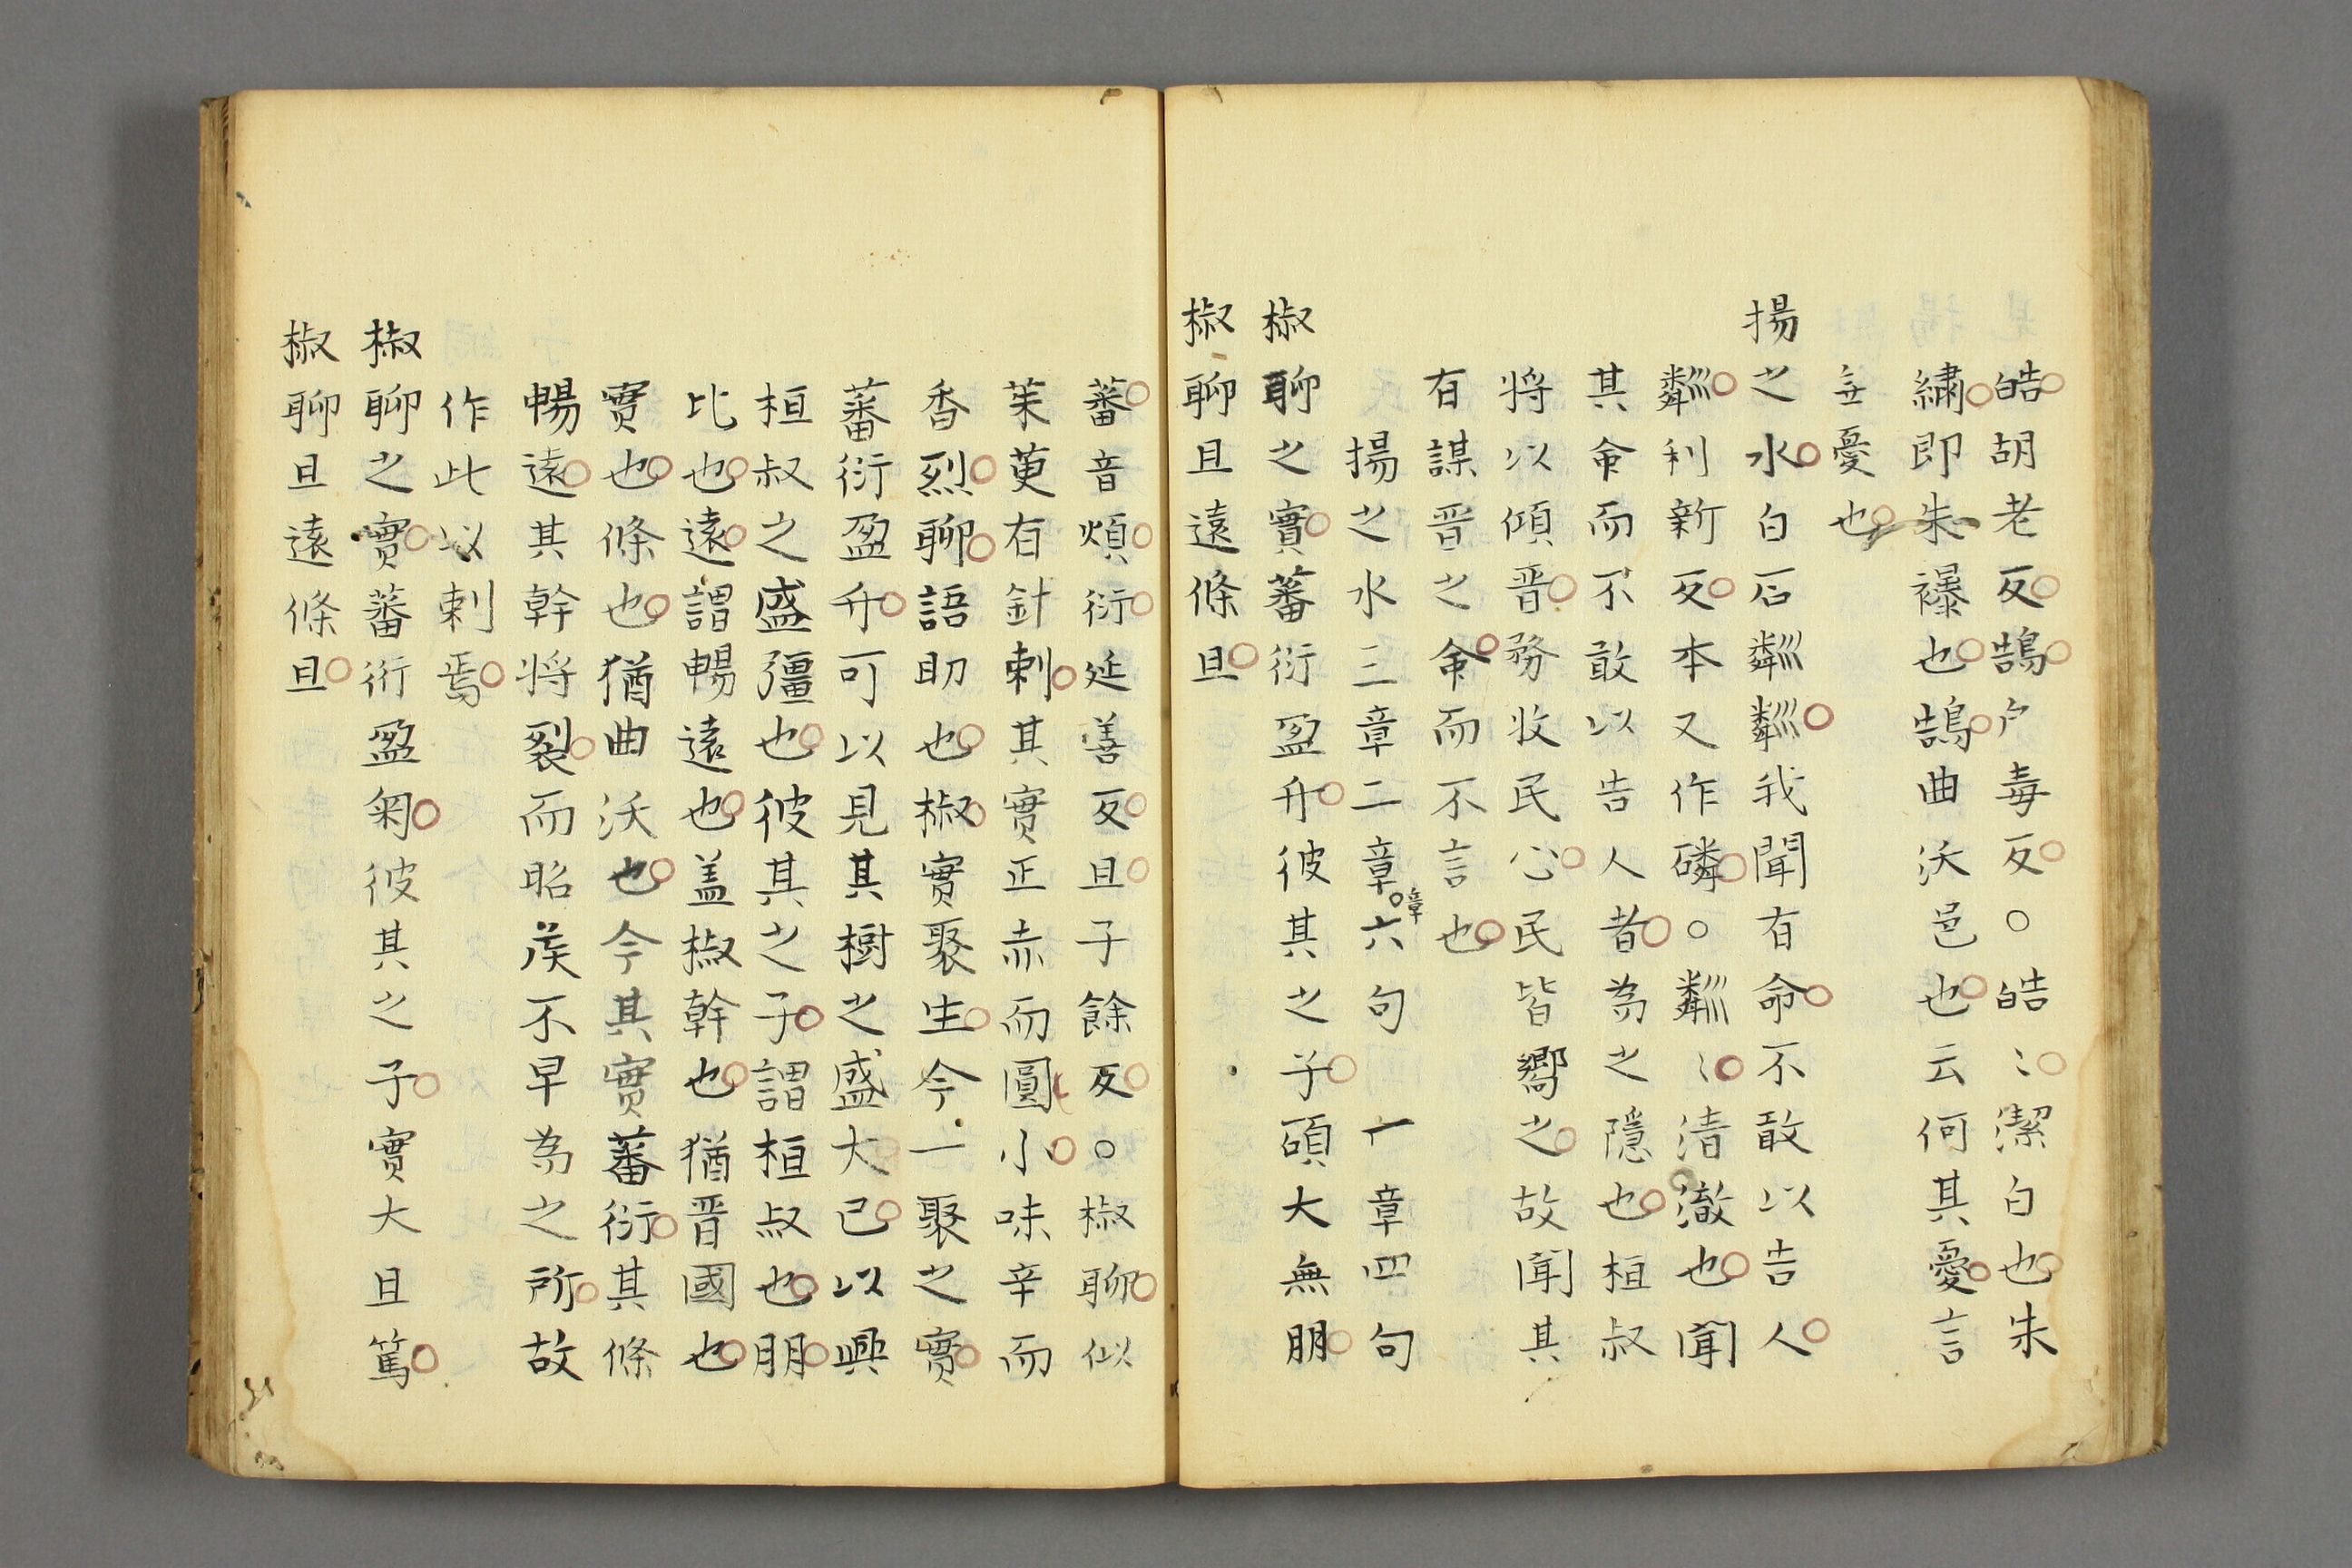 皓胡老反鵠户毒反○皓〻潔白也朱
繡即朱襮也鵠曲沃邑也云何其憂言
無憂也
揚之水白石粼粼我聞有命不敢以告人
粼利新反本又作磷○粼〻清澈也聞
其命而不敢以告人者為之隱也桓叔
将以傾晋務收民心民皆嚮之故闻其
有謀晋之命而不言也
揚之水三章二章章六句 一章四句
椒聊之實蕃衍盈升彼其之子碩大無朋
椒聊且遠條且
蕃音煩衍延善反且子餘反○椒聊似
茱萸有針刺其實正赤而圓小味辛而
香烈聊語助也椒實聚生今一聚之實
蕃衍盈升可以見其樹之盛大已以興
桓叔之盛彊也彼其之子謂桓叔也朋
比也遠謂暢遠也盖椒幹也猶晋國也
實也條也猶曲沃也今其實蕃衍其條
暢遠其幹将裂而昭矦不早為之所故
作此以刺焉
椒聊之實蕃衍盈匊彼其之子實大且篤
椒聊且遠條且